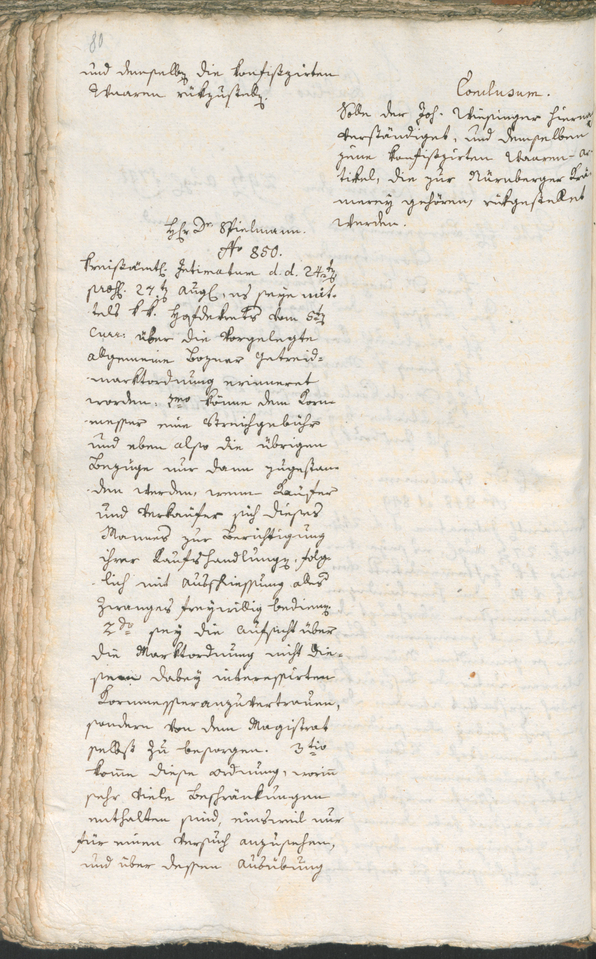 80
und demselben die konfiszirten
Waaren rükzustellen.
Conclusum.
Seÿe der Joh. Wiesinger hierna
verständiget, und demselben
jene konfiszirten Waaren-Ar
tikel, die zur Nürnberger Krä
merey gehören, rükgestellet
werden.
Hr. Dr. Spielmann.
No 850.
Kreisämtl. Intimatum d. d. 24ten
praes. 27ten Augl., es seye mit-
tels k.k. Hofdekrets vom 6ten
Curr: über die vorgelegte
allgemeine Bozner Getreid=
marktordnung erinneret
worden: 1mo könne dem Korn
messer eine Streichgebühr
und eben also die übrigen
Bezüge nur dann zugestan-
den werden, wenn Käufer
und Verkäufer sich dieses
Mannes zur Berichtigung
ihrer Kaufshandlungen, folg-
lich mit Ausschliessung alles
Zwanges freywillig bedienen
2do seÿ die Aufsicht über
die Marktordnung nicht die-
sem dabey interessirten
Kornmesser anzuvertrauen,
sondern von dem Magistrat
selbst zu besorgen. 3tio
könne diese Ordnung, worinn
sehr viele Beschränkungen
enthalten sind, einsweil nur
für einen Versuch anzusehen,
und über dessen Ausübung